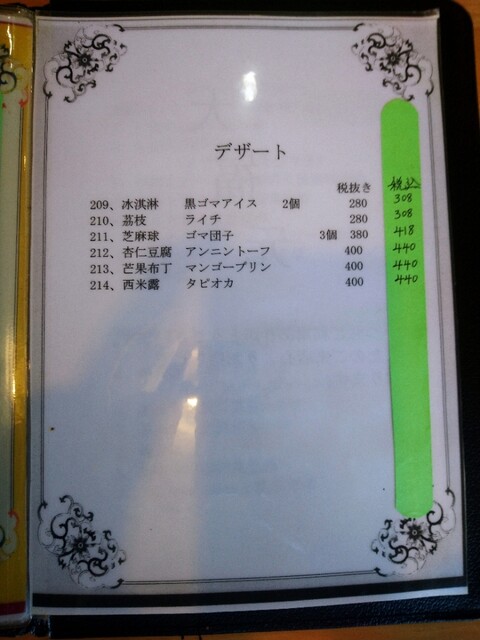 デザート
税抜き 税込
209、冰淇淋 黒ゴマアイス 2個 280 308
210、茘枝 ライチ 280 308
211、芝麻球 ゴマ団子 3個 380 418
212、杏仁豆腐 アンニントーフ 400 440
213、芒果布丁 マンゴープリン 400 440
214、西米露 タピオカ 400 440